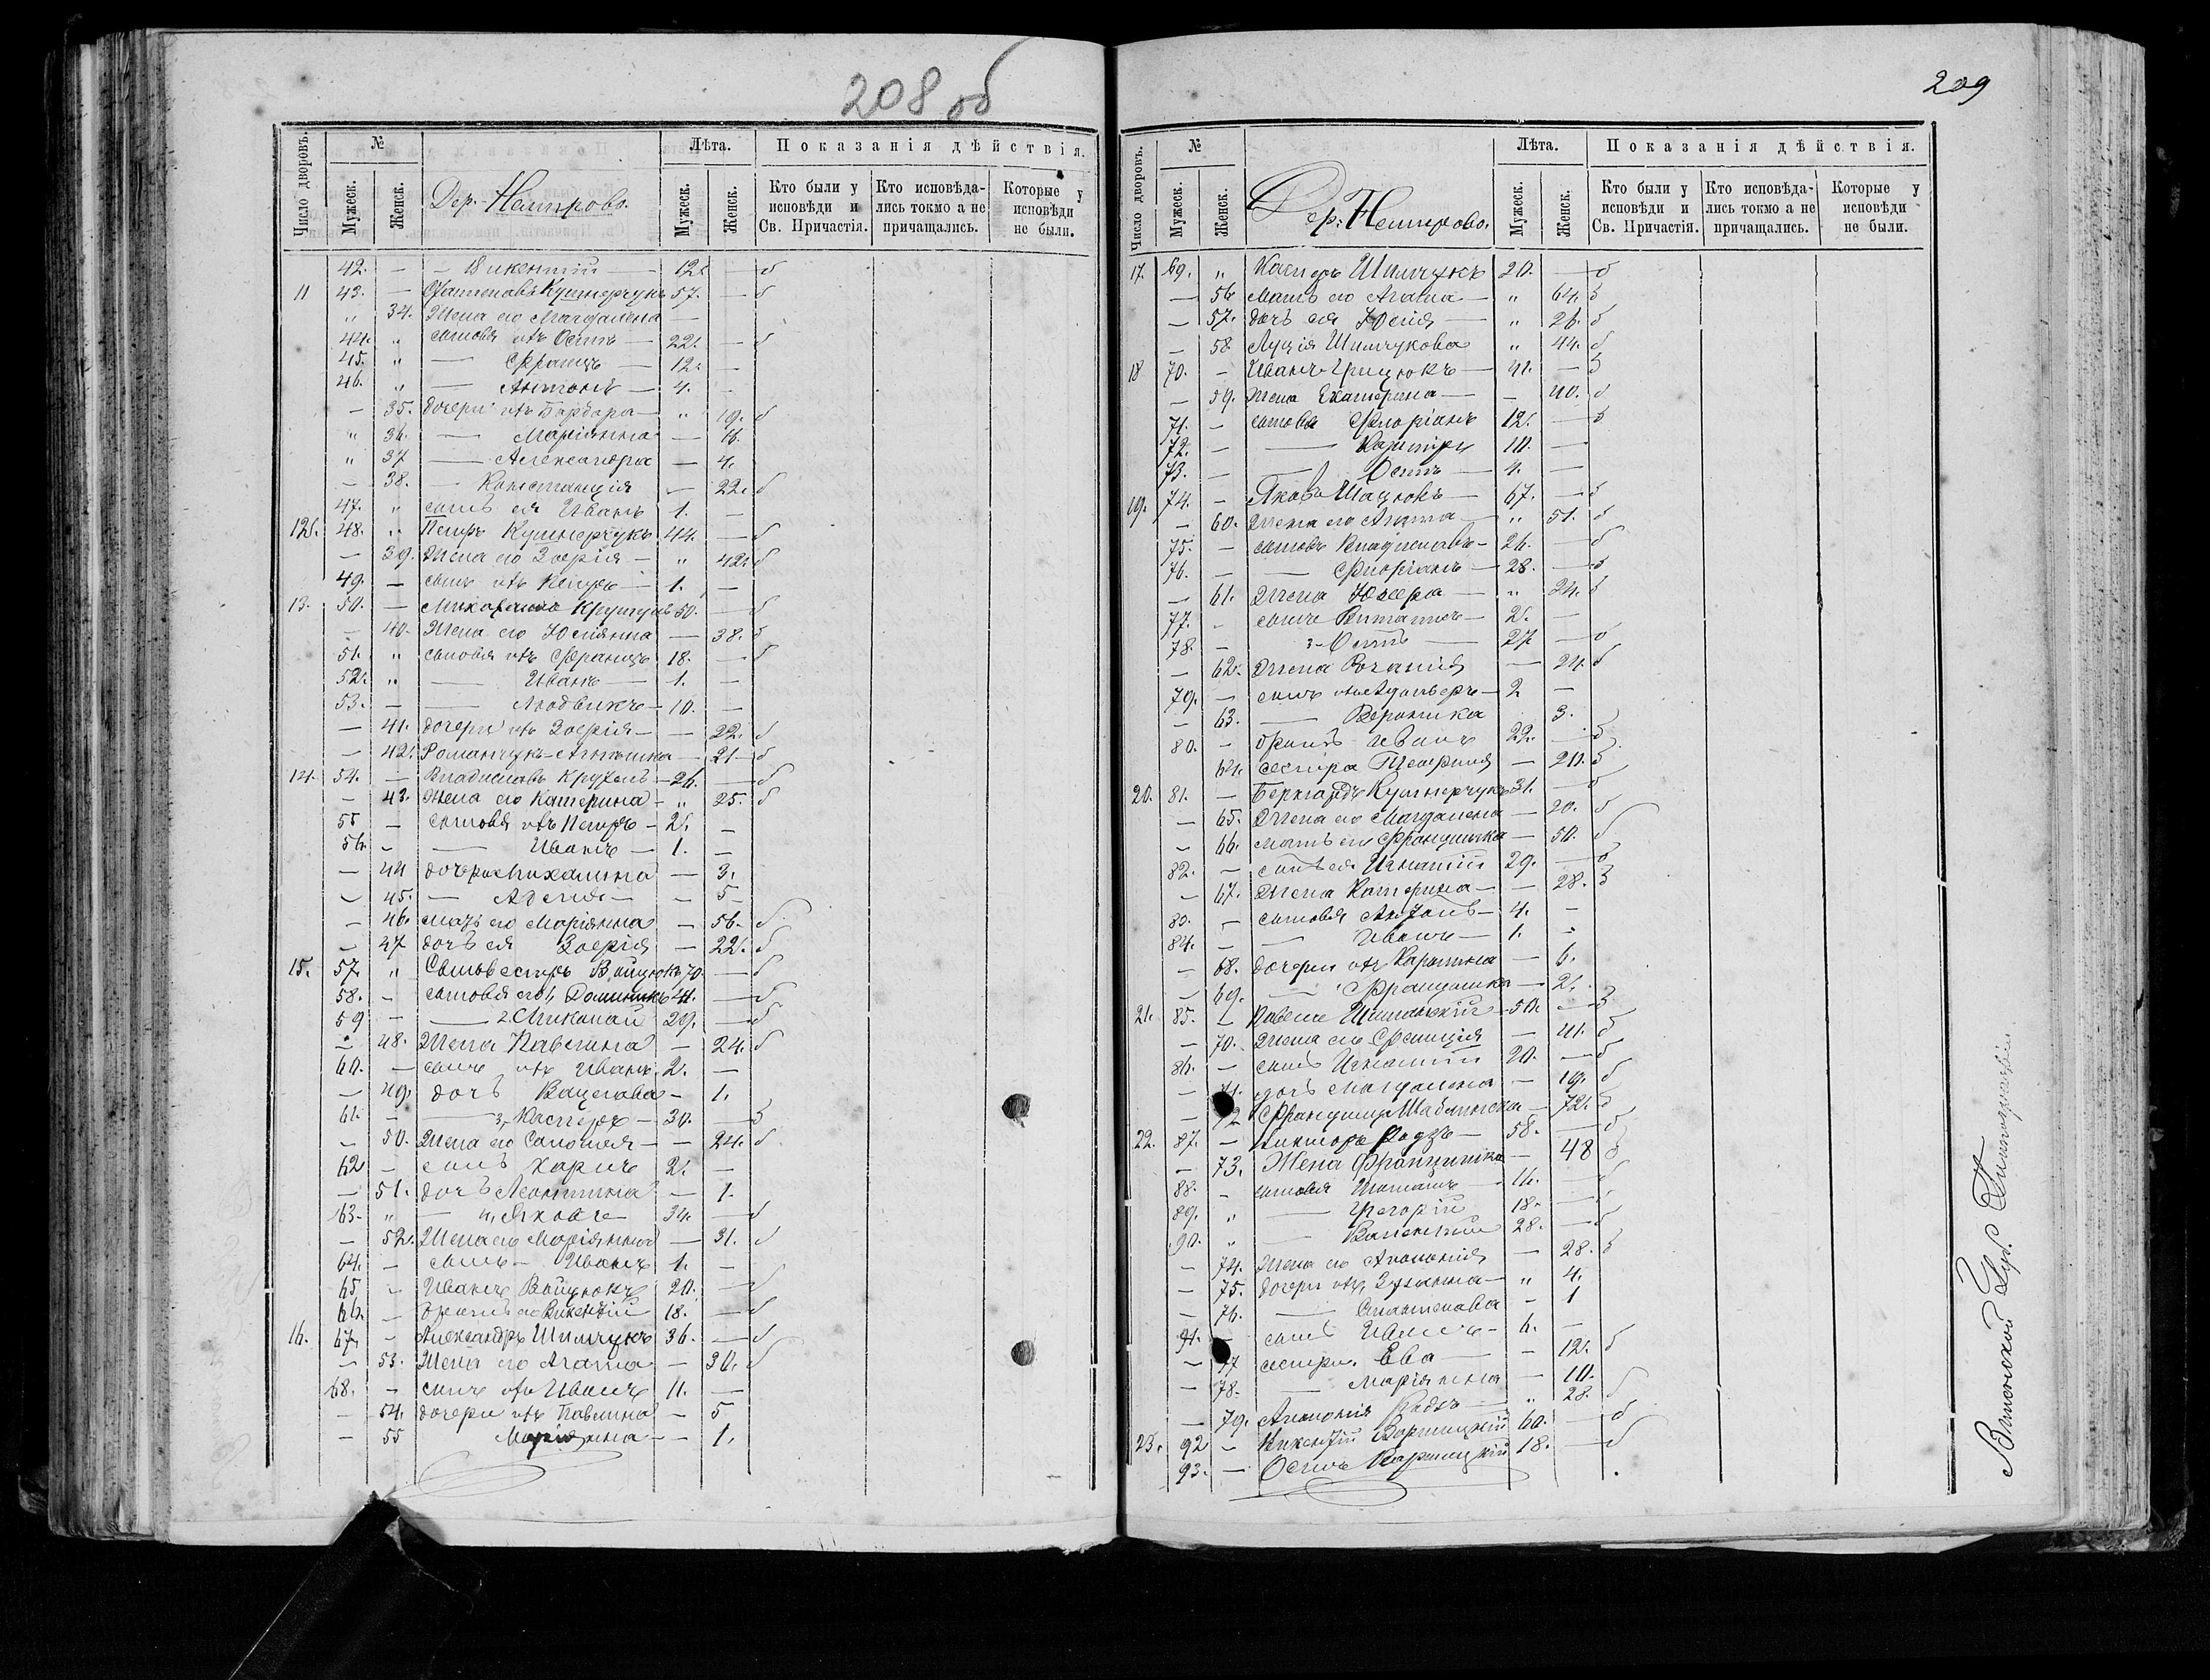 208 об
Число дворовъ. № Мужеск. Женск. Дер. Лѣта. Мужеск. Женск. Показанія дѣйствія.
Кто были у исповѣди и Св. Причастія. Кто исповѣдались токмо а не причащались. Которые у исповѣди не были.
42. — — Викентій — 12. — б
11 43. — Кушнерчукъ 57. — б
" 34. Жена его Магдалена —
44. " сыновья ихъ Осипъ — 22. — б
45. " — Францъ — 12. —
46. " — Антонъ — 4. —
— 35. дочери ихъ Барбара — " 19. б
" 36. — Маріянна — 16.
" 37 — Александра — 4.
— 38. — Констанція — 22. б
47. " сынъ ея Иванъ 1. —
12. 48. " Петръ Кушнерчукъ 44. — б
— 39. Жена его Зофія — " 42. б
49. — сынъ ихъ Петръ — 1. —
13. 50. — 50. — б
— 40. Жена его Юліянна — 38. б
51. " сыновья ихъ Францъ 18. — б
52. " — Иванъ — 1. —
53. — — Людвикъ — 10. —
— 41. дочери ихъ Зофія — — 22. б
— 42. Романчукъ — 21 — б
14. 54. — Владиславъ 26. — б
— 43. Жена его Катерина — " 25. б
55 — сыновья ихъ Петръ — 2. —
56. — — Иванъ — 1. —
— 44 дочери Михалина — 3.
— 45. — — — 5 —
— 46. мать его Маріянна — 56. б
— 47 дочь ея Зофія — 22. б
15. 57. " Сильвестръ Войцюкъ 70. — б
58. — сыновья его 1, Доминикъ 41. — б
59 — — 2. Николай 29. — б
— 48. Жена Павлина — 24. б
60. — сынъ ихъ Иванъ. 2. —
— 49. дочь Вацслава — 1.
61. — — 3, Касперъ — 30. — б
— 50. Жена его Саломея — — 24. б
62 — сынъ Карлъ 2. —
— 51. дочь Леонтина — 1.
63. " — 4, Яковъ — 34. — б
— 52. Жена его Маріянна — 31. б
64. — сынъ — Иванъ 1. —
65 — Иванъ Войцюкъ 20. — б
66. — братъ его Викентій 18. — б
16. 67. — Александръ Шимчукъ 36. — б
— 53. Жена его Агата — 30. б
68. — сынъ ихъ Иванъ 11. —
— 54. дочери ихъ Павлина — 5
— 55 Маріянна — — 1.
209
Число дворовъ. № Мужеск. Женск. Дер. Лѣта. Мужеск. Женск. Показанія дѣйствія.
Кто были у исповѣди и Св. Причастія. Кто исповѣдались токмо а не причащались. Которые у исповѣди не были.
17. 69. " Касперъ Шимчукъ 20. — б
— 56 Мать его Агата — " 64. б
— 57. дочь ея Юлія — " 26. б
— 58. Луція Шимчукова " 44. б
18 70. — Иванъ Грицюкъ — 41. — б
— 59. Жена Екатерина — — 40. б
71. — сыновья Флоріанъ 12. — б
72. — — Казиміръ 10. —
73. — — Осипъ — 4. —
19. 74. — Яковъ Шацюкъ — 67. — б
— 60. Жена его Агата — " 51. б
75. — сыновья Владиславъ — 26. — б
76. — — Флоріанъ — 28. — б
— 61. Жена Юзефа — " 24. б
77. — сынъ — 2. —
78. — 3 — Осипъ — 27 — б
— 62. Жена Розалія — 24. б
79. — сынъ ихъ — 2 —
— 63. — Вероника 3.
80. — братъ Иванъ 22. — б
64. сестра Теофилія — 20. б
20. 81. — Бернардъ Кушнерчукъ 31. — б
— 65. Жена его Магдалена — 20. б
— 66. мать его Францишка — 50. б
82. — сынъ ея Игнатій 29. — б
— 67. Жена Катерина — — 28. б
83. — сыновья Антонъ — 4. —
84. — — Иванъ — 1. —
— 68. дочери ихъ Каролина — 6.
— 69. — Францишка — 2.
21. 85. — Павелъ — 50. — б
— 70. Жена его Фелиція — 41. б
86. — сынъ Игнатій 20. — б
— 71. дочь Магдалена — 19. б
— 72 — 72. б
22. 87. — Викторъ — 58. — б
— 73. Жена Францишка — 48 б
88. — сыновья — 16. — б
89. " — Григорій 18. — б
90. " — 28. — б
— 74. Жена его Аполонія — 28. б
— 75. дочери ихъ, Зузанна — " 4.
— 76. — Станислава — 1
91. — сынъ Иванъ — 6. —
— 77 сестры. Ева — — 12. б
— 78. — Маріянна — 10.
— 79. Аполонія " 28. б
23. 92 — Викентій 60. — б
93. — Осипъ 18. — б
Виленской Губ.